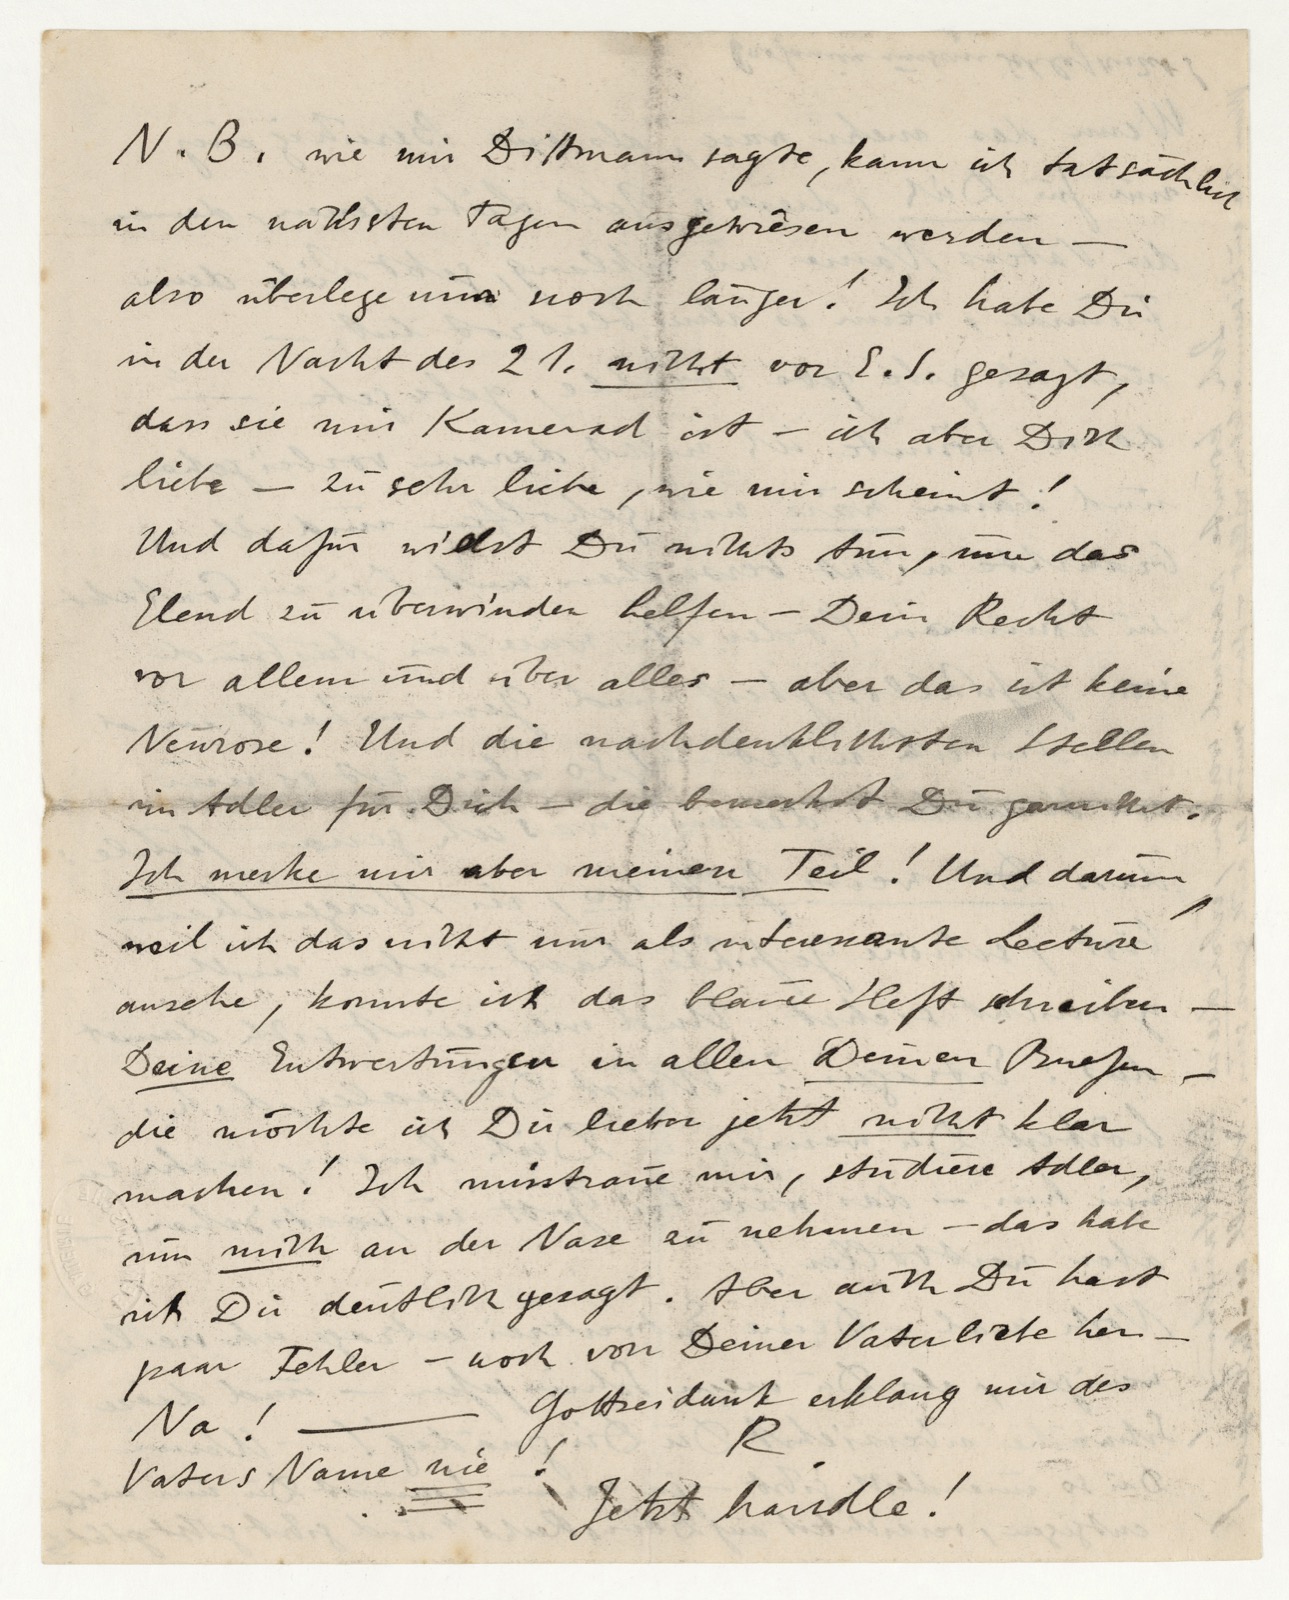 N.B. wie mir Dittmann sagte, kann ich tatsächlich
in den nächsten Tagen ausgewiesen werden —
also überlege nur noch länger! Ich habe Dir
in der Nacht des 21. nicht vor E.S. gesagt,
dass sie mir Kamerad ist – ich aber Dich
liebe – zu sehr liebe, wie mir scheint!
Und dafür willst Du nichts tun, mir das
Elend zu überwinden helfen – Dein Recht
vor allem und über alles – aber das ist keine
Neurose! Und die nachdenklichsten Stellen
im Adler für Dich – die bemerkst Du gar nicht.
Ich merke mir aber meinen Teil! Und darum,
weil ich das nicht nur als interessante Lecture
ansehe, konnte ich das blaue Heft schreiben —
Deine Entwertungen in allen Deinen Briefen –
die möchte ich Dir lieber jetzt nicht klar
machen! Ich misstraue mir, studiere Adler,
um mich an der Nase zu nehmen – das habe
ich Dir deutlich gesagt. Aber auch Du hast
paar Fehler – noch von Deiner Vaterliebe her –
Na! — Gottseidank erklang mir des
Vaters Name nie!
R.
Jetzt handle!